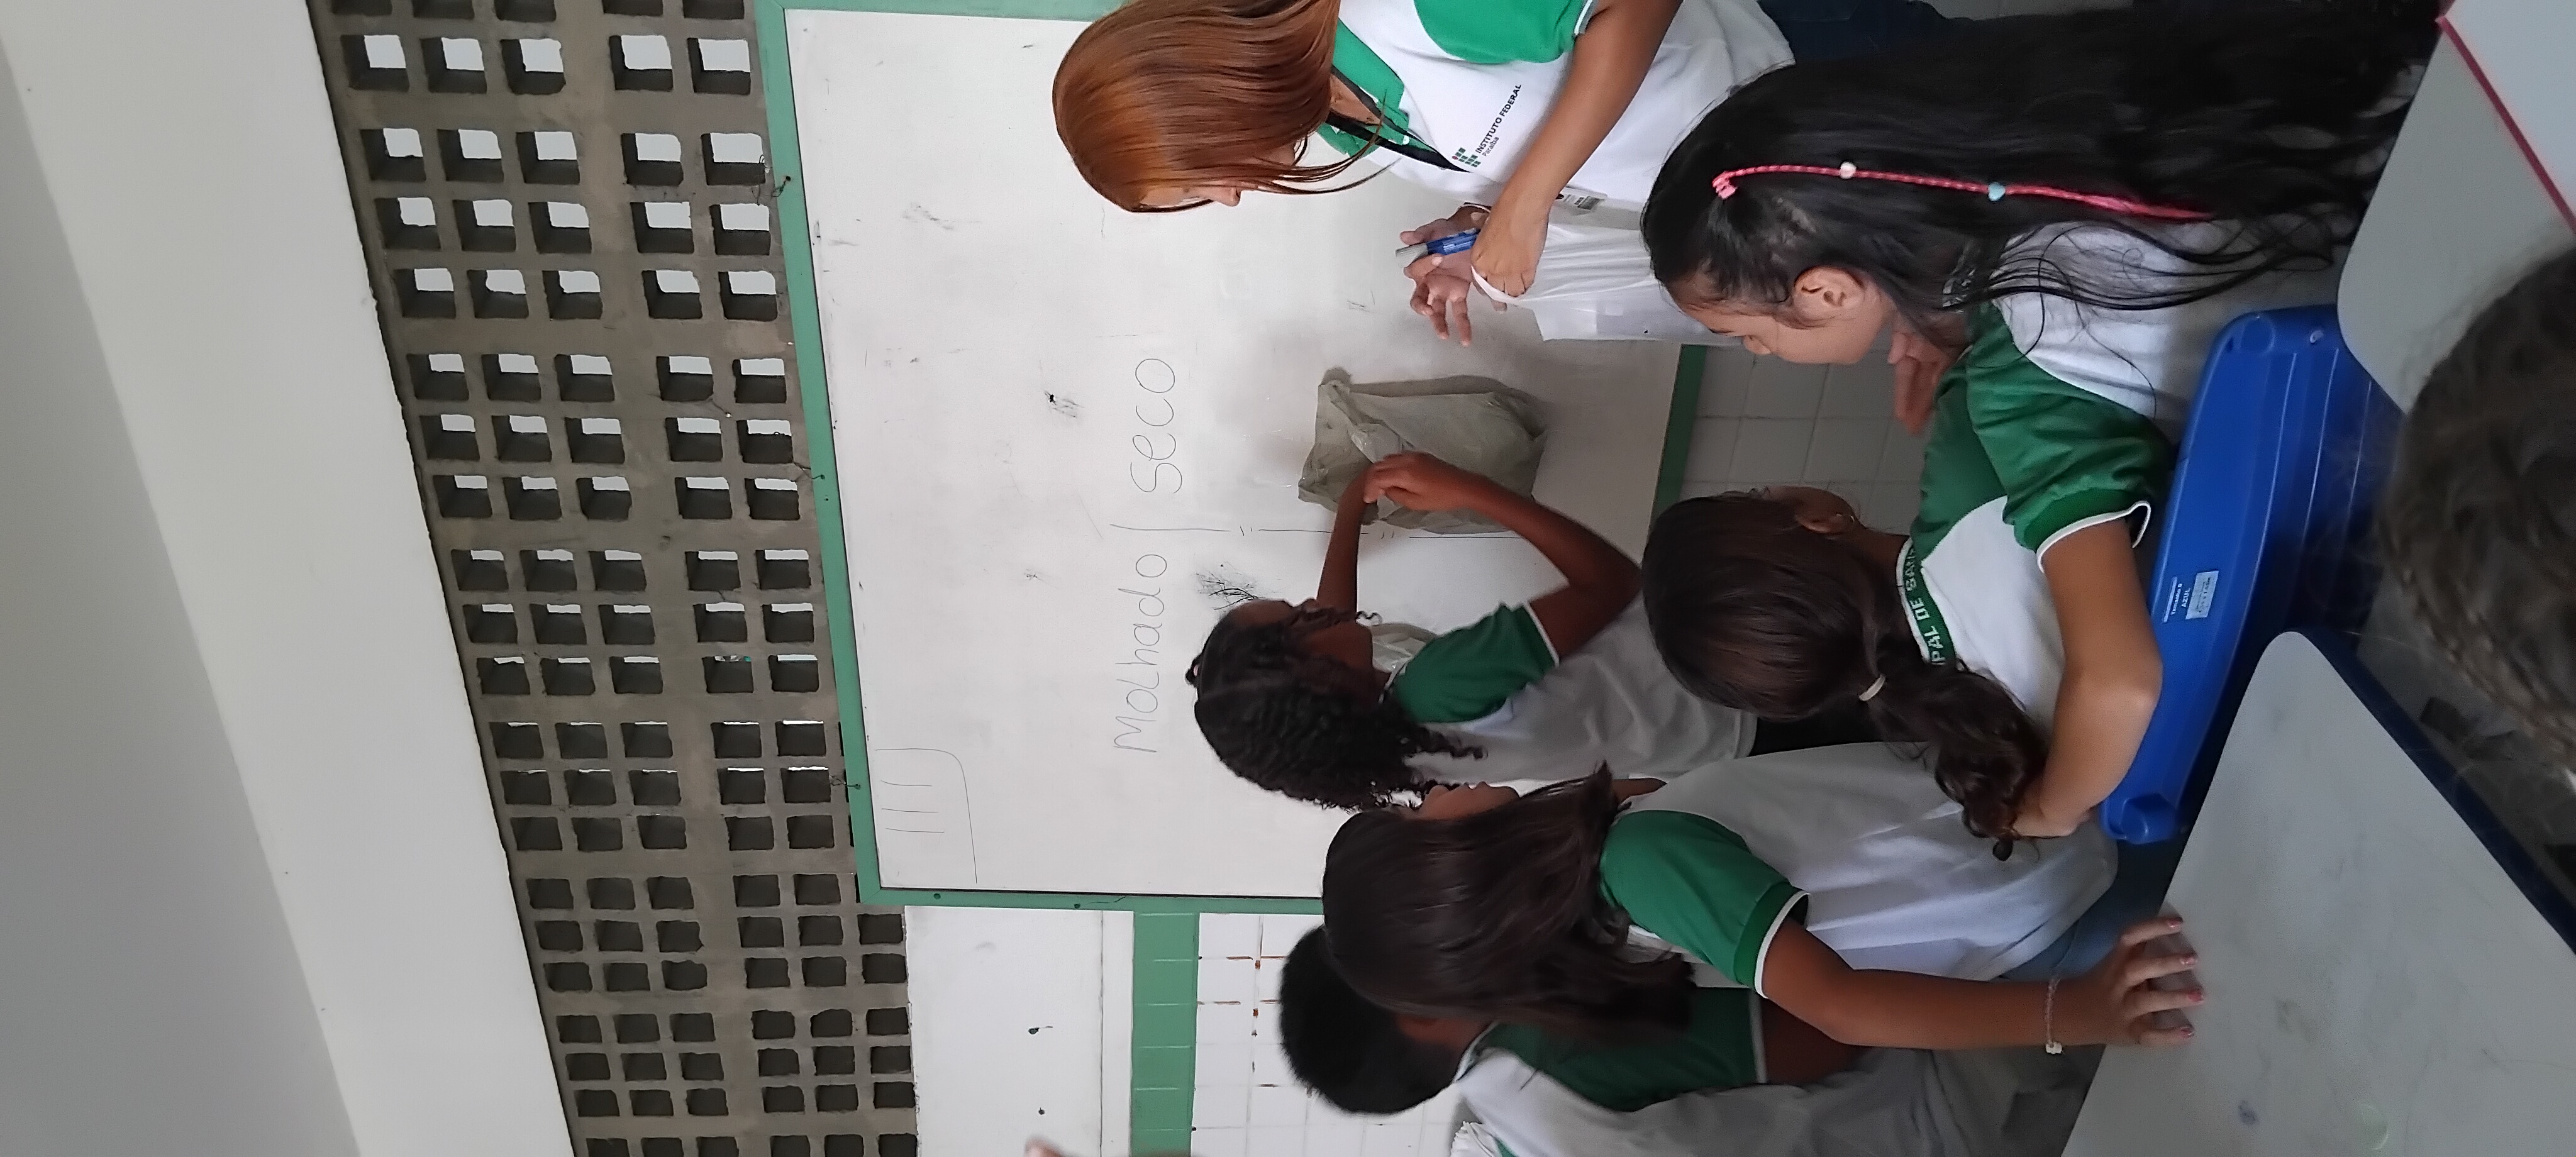 Molhado | seco
INSTITUTO FEDERAL
Paraíba
PAL DE SANT
Tamanho 6
AZUL